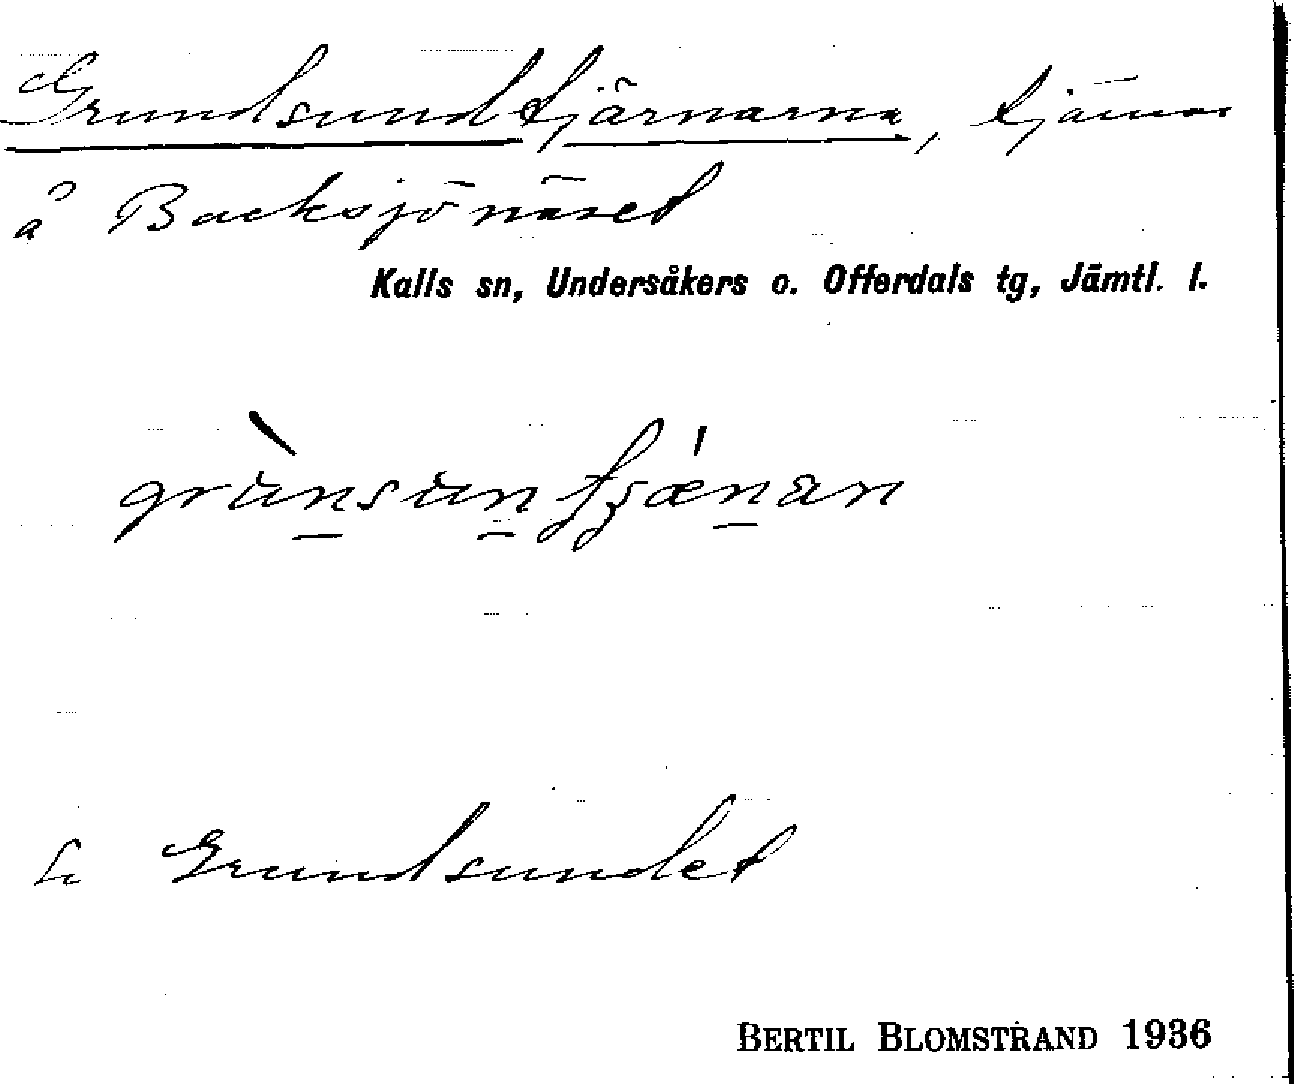 Grundsundtjärnarna, tjärnar
å Backsjönäset
Kalls sn, Undersåkers o. Offerdals tg, Jämtl. l.
Grundsundet
BERTIL BLOMSTRAND 1936